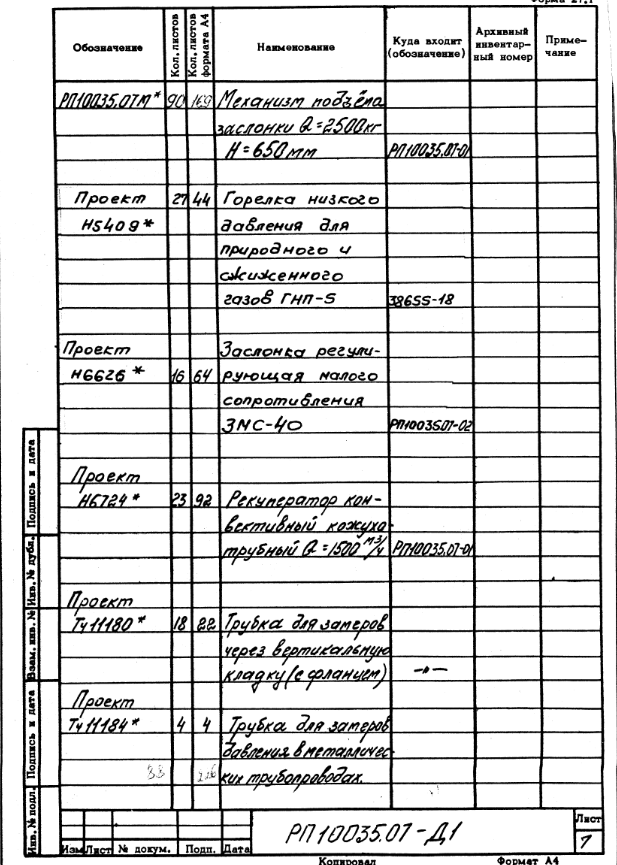 Форма 27.1
Обозначение Кол. листов Кол. листов формата А4 Наименование Куда входит (обозначение) Архивный инвентар-ный номер Приме-чание
РП10035.07М* 90 169 Механизм подъёма
заслонки Q=2500кг
H=650мм РП10035.07-01
Проект 27 44 Горелка низкого
Н5409* давления для
природного и
сжиженного
газов ГНП-5 38655-18
Проект Заслонка регули-
Н6626* 16 64 рующая малого
сопротивления
ЗМС-40 РП10035.07-02
Проект
Н6724* 23 92 Рекуператор кон-
вективный кожухо-
трубный Q=1500 м3/ч РП10035.07-01
Проект
Тч11180* 18 22 Трубка для замеров
через вертикальную
кладку (с фланцем) –»–
Проект
Тч11184* 4 4 Трубка для замеров
давления в металличес-
33 ких трубопроводах.
Подпись и дата
Инв. № дубл.
Взам. инв. №
Подпись и дата
Инв. № подл.
РП10035.07-Д1
Лист
7
Изм Лист № докум. Подп. Дата
Копировал Формат А4